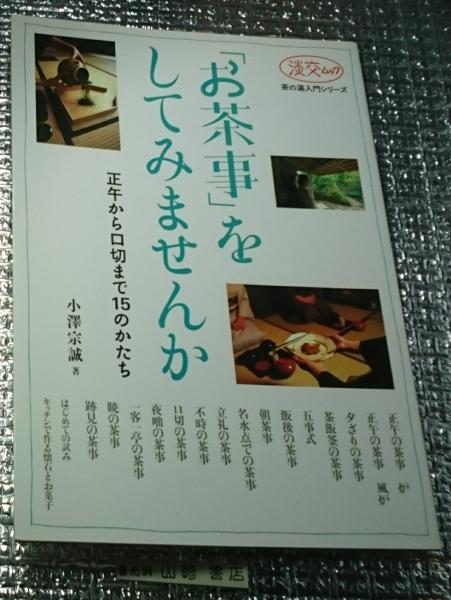 淡交ムック
茶の湯入門シリーズ
「お茶事」を
してみませんか
正午から口切まで15のかたち
小澤宗誠 著
正午の茶事 炉
正午の茶事 風炉
夕ざりの茶事
茶飯釜の茶事
五事式
飯後の茶事
朝茶事
名水点での茶事
立礼の茶事
不時の茶事
口切の茶事
夜咄の茶事
一客一亭の茶事
暁の茶事
跡見の茶事
はじめての試み
キッチンで作る懐石とお菓子
書店